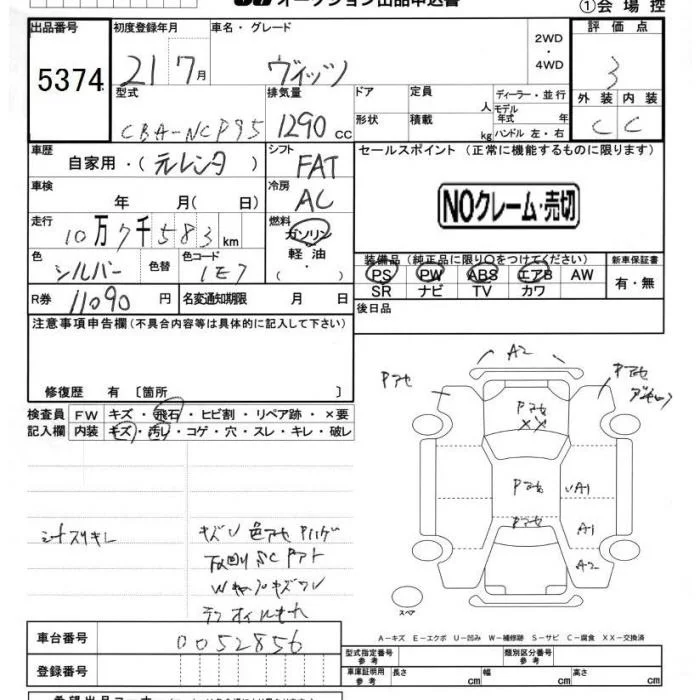 オークション出品申込書
①会場控
出品番号 初度登録年月 車名・グレード 2WD ・ 4WD 評価点
5374 21 7月 ヴィッツ 3
型式 排気量 ドア 定員 人 ディーラー・並行 外装 内装
CBA-NCP95 1290cc 形状 積載 kg モデル年式 年 ハンドル 左・右 C C
車歴 シフト セールスポイント (正常に機能するものに限ります)
自家用・(元レンタ) FAT
車検 年 月(日) 冷房 AC NOクレーム・売切
走行 10万7千583km 燃料 ガソリン 軽油 (・)
色 シルバー 色替 色コード 1E7
装備品 (純正品に限り○をつけてください) 新車保証書
PS PW ABS エアB AW 有・無
SR ナビ TV カワ
R券 11090円 名変通知期限 月 日 後日品
注意事項申告欄(不具合内容等は具体的に記入して下さい)
修復歴 有 〔箇所 〕
検査員記入欄 FW キズ・飛石・ヒビ割・リペア跡・×要
内装 キズ・汚レ・コゲ・穴・スレ・キレ・破レ
A2
Pアセ
Pアセ
Pアセ
XX
Pアセ
A1
Pアセ
A1
A2
スペア
シートスリキレ
下回りSC
A-キズ E-エクボ U-凹み W-補修跡 S-サビ C-腐食 XX-交換済
車台番号 0052856
登録番号
型式指定番号 参考 類別区分番号 参考
車庫証明用 参考 長さ cm 幅 cm 高さ cm
希望出品コーナー